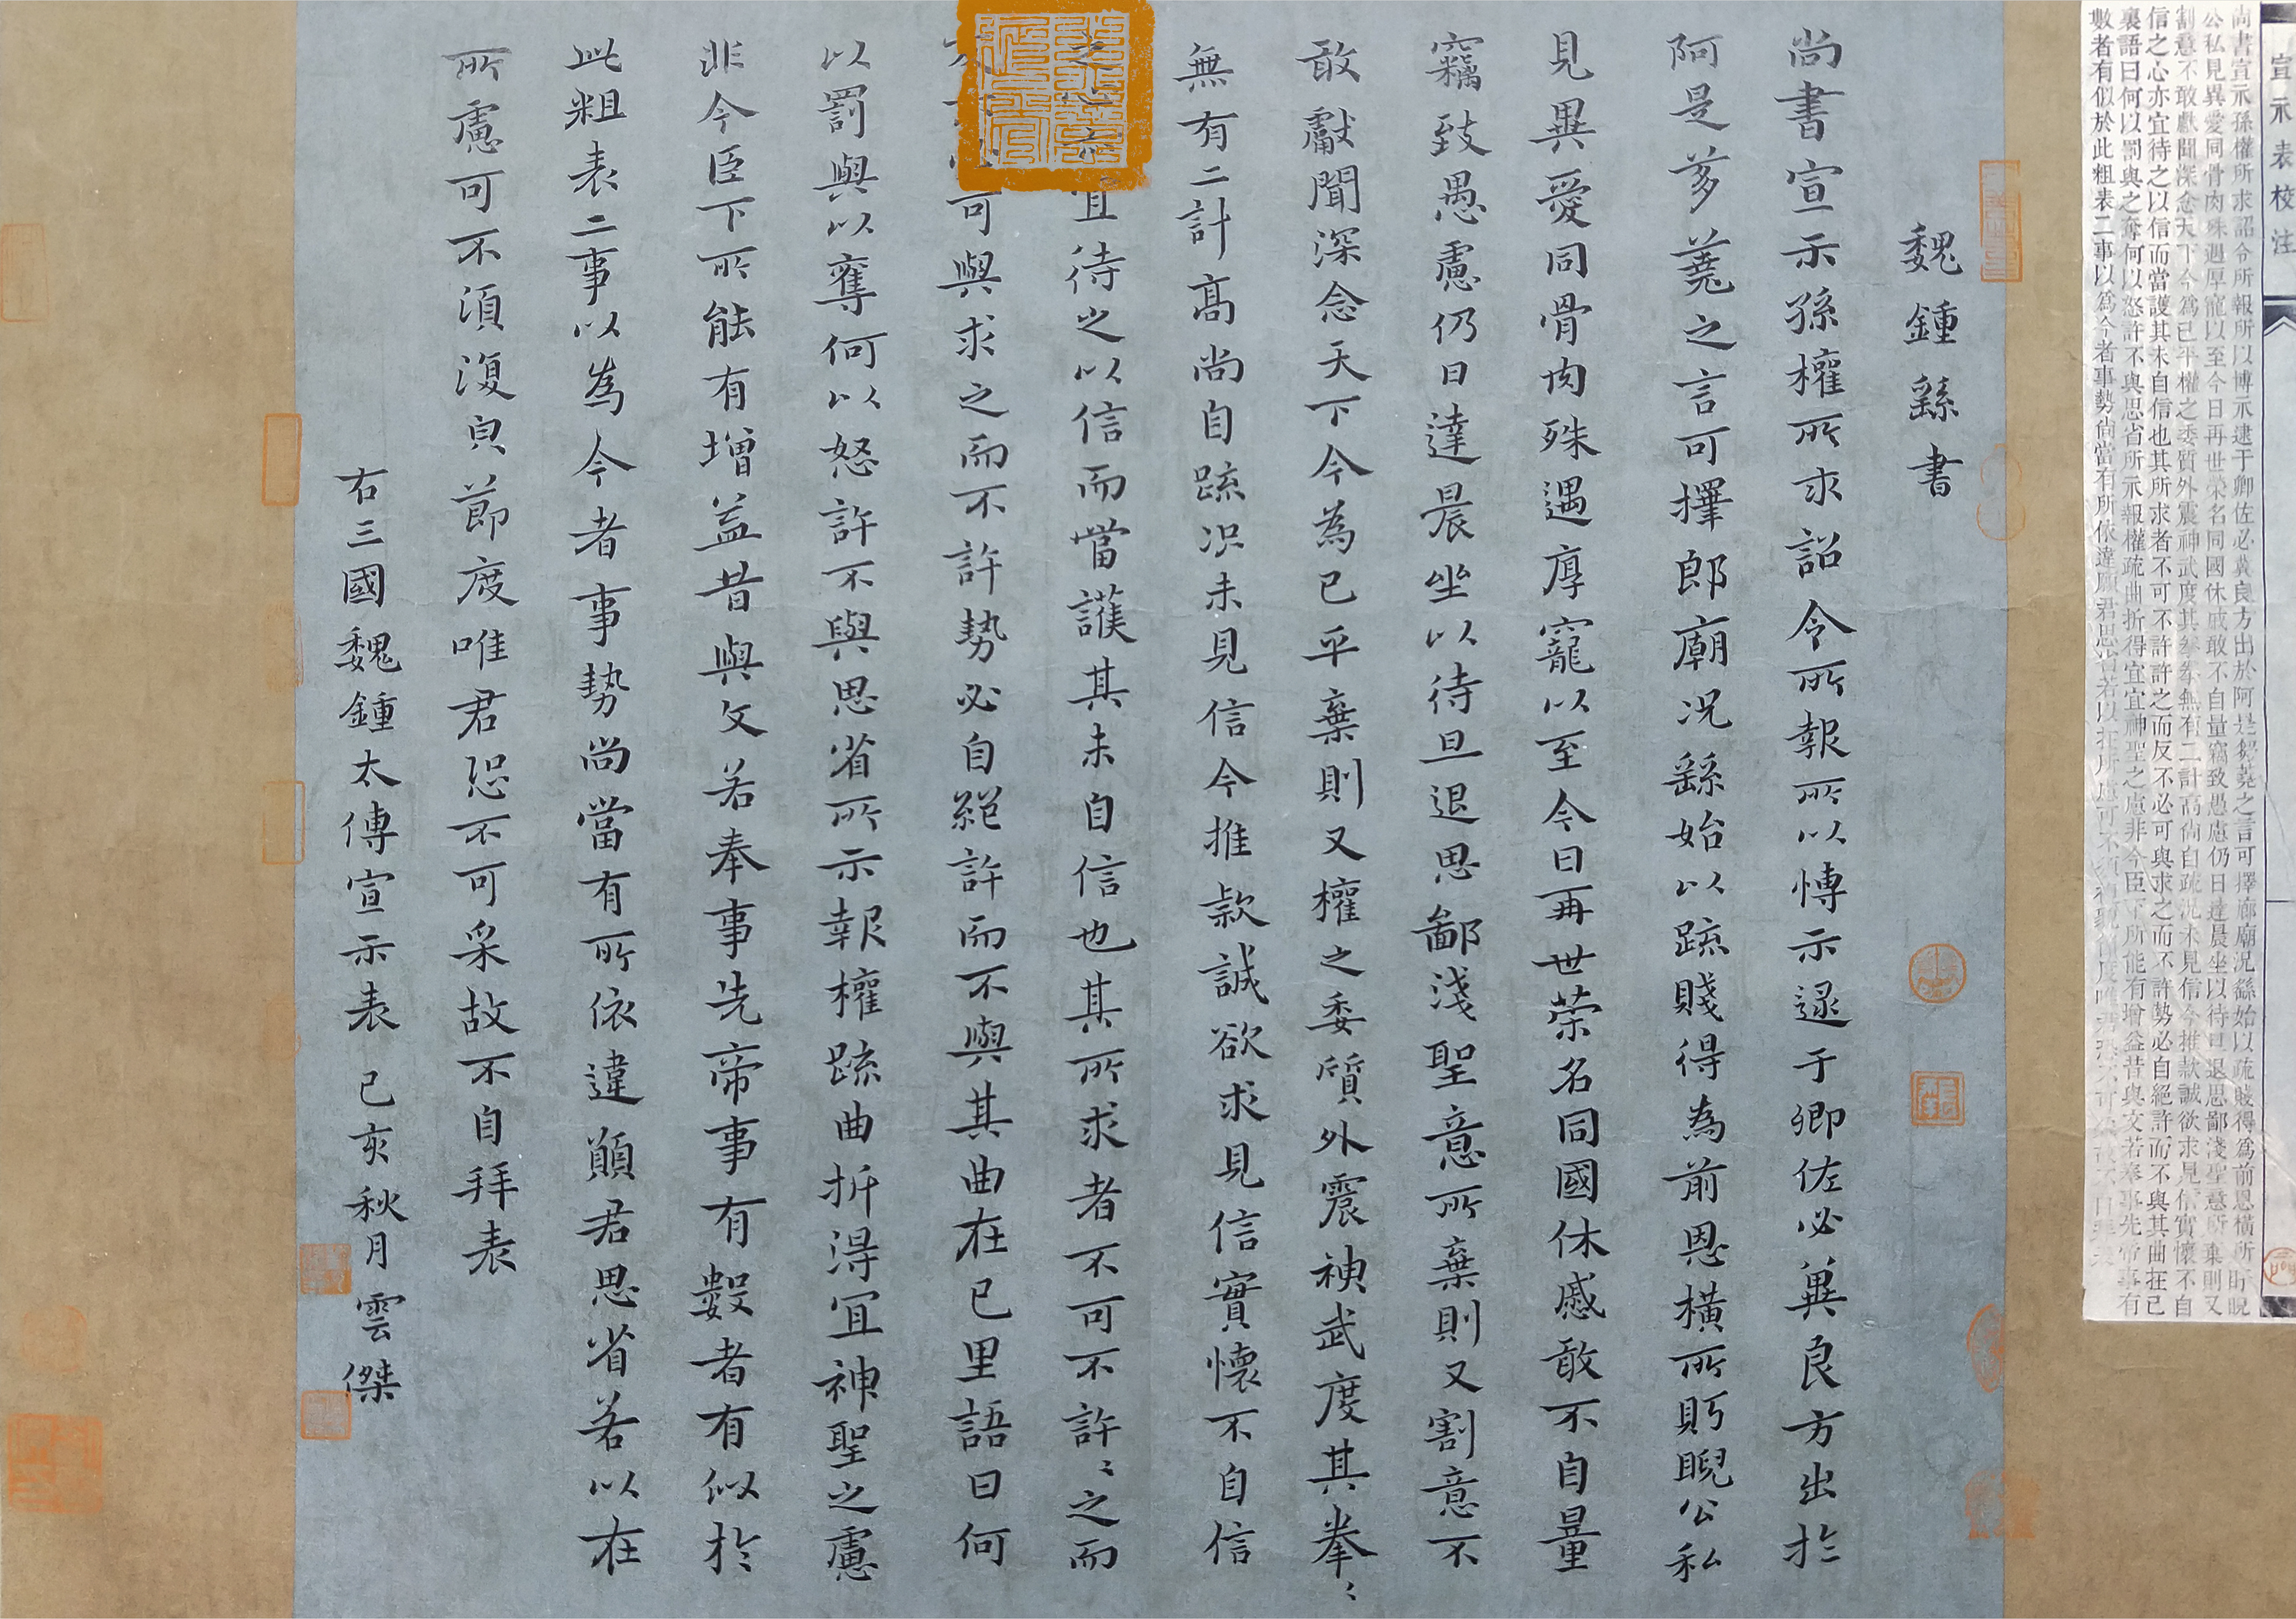 宣示表校注
尚書宣示孫權所求詔令所報所以博示逮于卿佐必冀良方出於阿是芻蕘之言可擇廊廟況繇始以疏賤得爲前恩橫所盱睨
公私見異愛同骨肉殊遇厚寵以至今日再世榮名同國休慼敢不自量竊致愚慮仍日達晨坐以待旦退思鄙淺聖意所棄則又
割意不敢獻聞深念天下今爲已平權之委質外震神武度其拳拳無有二計高尚自疏況未見信今推款誠欲求見信實懷不自
信之心亦宜待之以信而當護其未自信也其所求者不可不許許之而反不必可與求之而不許勢必自絕許而不與其曲在已
裏語曰何以罰與之奪何以怒許不與思省所示報權疏曲折得宜宜神聖之慮非今臣下所能有增益昔與文若奉事先帝事有
數者有似於此粗表二事以爲今者事勢尚當有所依違願君思省若以在所慮可不
魏鍾繇書
尚書宣示孫權所求詔令所報所以博示逯于卿佐必冀良方出於
阿是芻蕘之言可擇郎廟況繇始以疏賤得為前恩橫所眄睨公私
見異愛同骨肉殊遇厚寵以至今日再世榮名同國休慼敢不自量
竊致愚慮仍日達晨坐以待旦退思鄙淺聖意所棄則又割意不
敢獻聞深念天下今為已平棄則又權之委質外震神武度其拳〻
無有二計高尚自疏況未見信今推款誠欲求見信實懷不自信
之心亦宜待之以信而當護其未自信也其所求者不可不許〻之而
可與求之而不許勢必自絕許而不與其曲在已里語曰何
以罰與以奪何以怒許不與思省所示報權疏曲折得宜神聖之慮
非今臣下所能有增益昔與文若奉事先帝事有數者有似於
此粗表二事以為今者事勢尚當有所依違願君思省若以在
所慮可不須復皃節度唯君恐不可采故不自拜表
右三國魏鍾太傅宣示表 己亥秋月雲傑